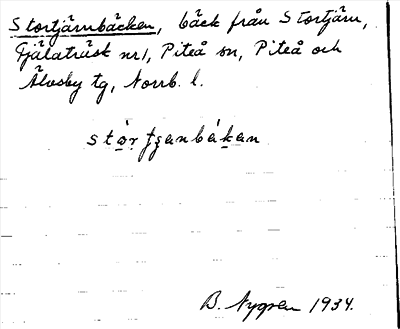 Stortjärnbäcken, bäck från Stortjärn,
Fjälaträsk nr 1, Piteå sn, Piteå och
Älvsby tg, Norrb. l.
B. Nygren 1934.